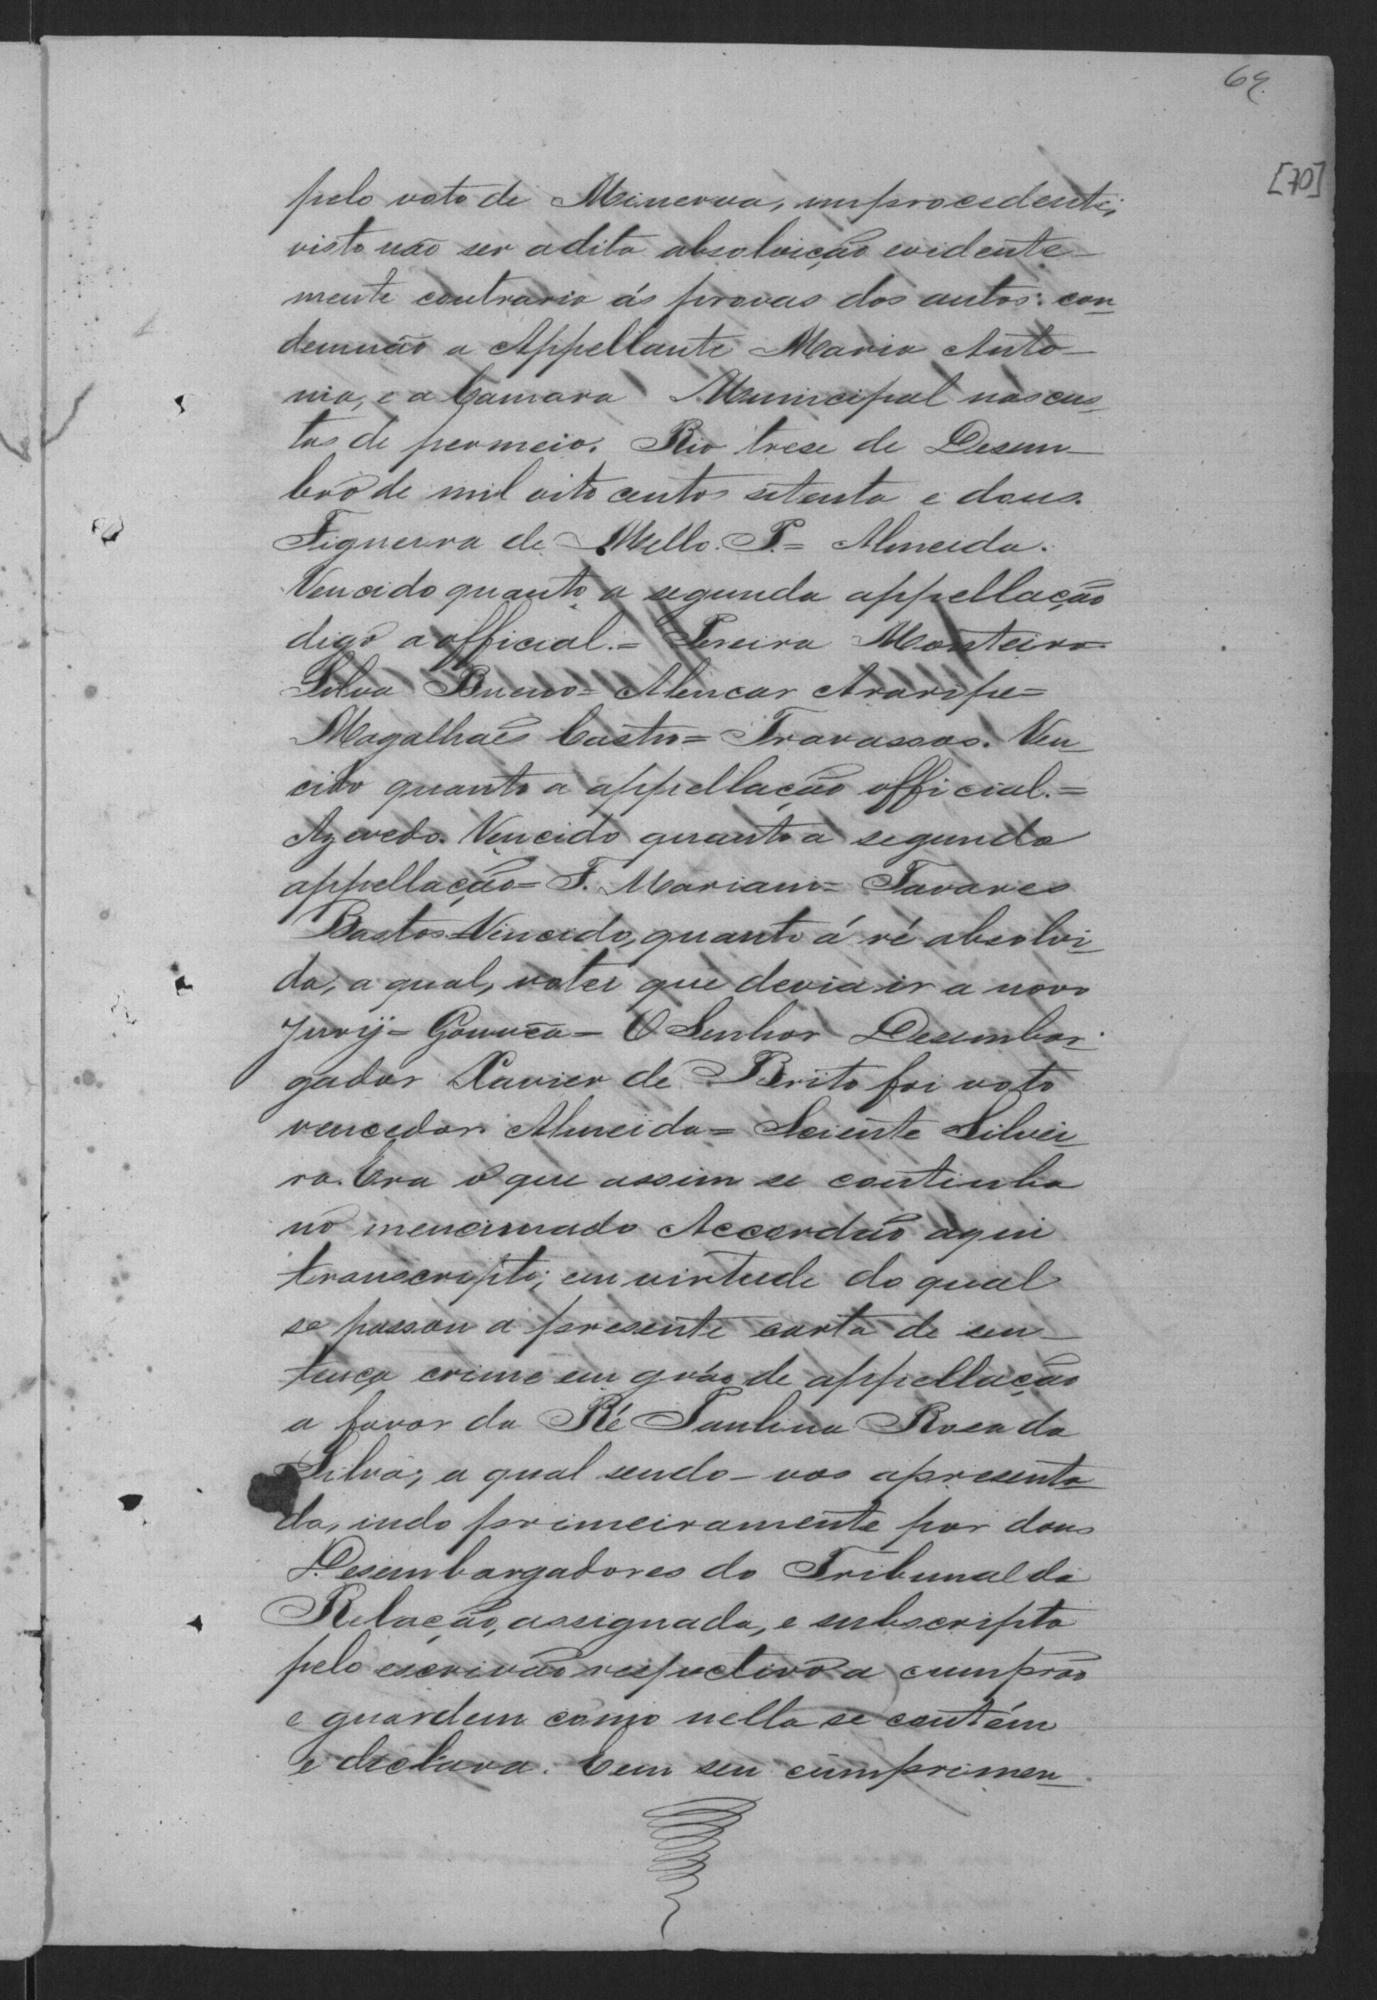 69.
[70]
pelo voto de Minerva, improcedente;
visto não ser a dita absolvição evidente-
mente contraria ás provas dos autos: con
demnão a Appellante Maria Anto-
nia, e a Camara Municipal nas cus
tas de permeio. Rio trese de Desem-
bro de mil oito centos setenta e dous.
Figueira de Mello. P.= Almeida.
Vencido quanto a segunda appellação
digo a official.= Pereira Monteiro=
Silva Bueno= Alencar Araripe=
Magalhaēs Castro= Travassos. Ven
cido quanto a appellação official.=
Azevedo. Vencido quanto a segunda
appellação= F. Mariani= Tavares
Bastos Vencido, quanto á ré absolvi
da, a qual, votei que devia ir a novo
Jury= Gouvêa= O Senhor Desembar
gador Xavier de Brito foi voto
vencedor. Almeida= Sciente Silvei
ra. Era o que assim se continha
no mencionado Accordão aqui
transcripto; em virtude do qual
se passou a presente carta de sen-
tença crime em gráo de appellação
a favor da Ré Paulina Rosa da
Silva; a qual sendo-vos apresenta
da, indo primeiramente por dous
Desembargadores do Tribunal da
Relação, assignada, e subscripta
pelo escrivão respectivo a cumprão
e guardem como nella se contém
e declara. Cem seu cumprimen